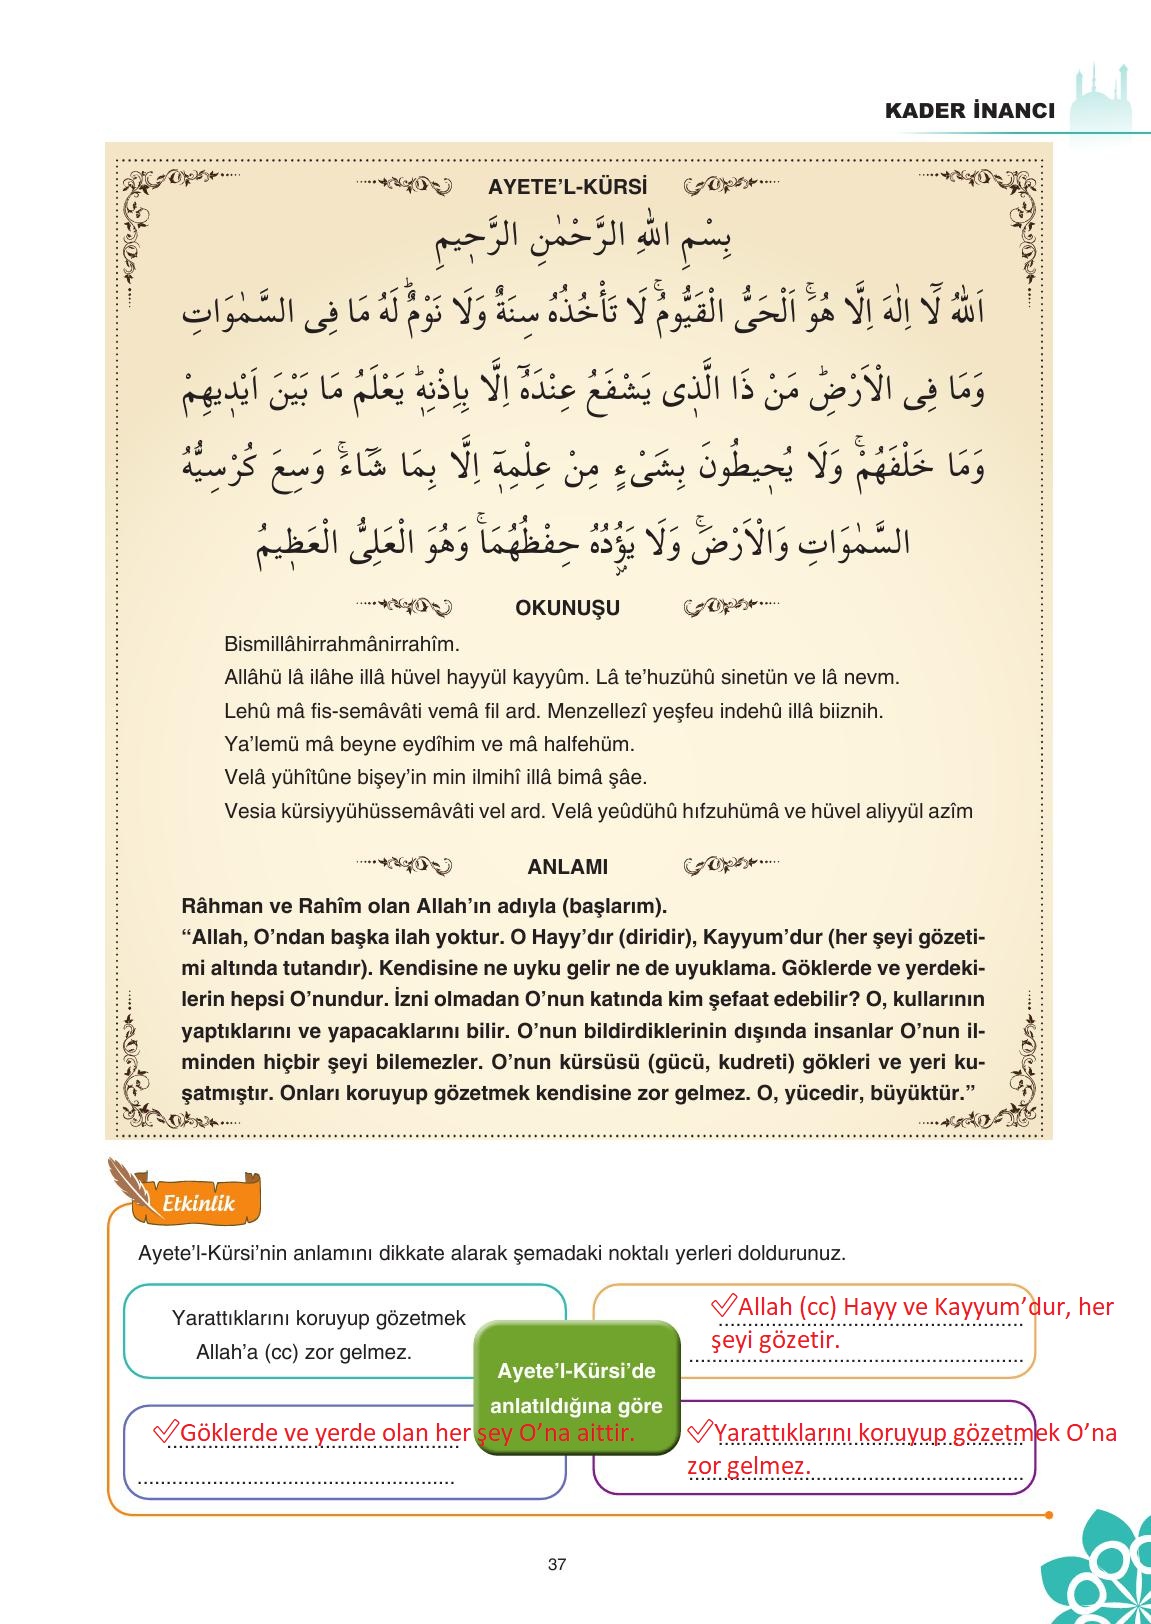 KADER İNANCI
AYETE’L-KÜRSİ
بِسْمِ اللّٰهِ الرَّحْمٰنِ الرَّح۪يمِ
اَللّٰهُ لَٓا اِلٰهَ اِلَّا هُوَۚ اَلْحَىُّ الْقَيُّومُۚ لَا تَأْخُذُهُ سِنَةٌ وَلَا نَوْمٌۜ لَهُ مَا فِى السَّمٰوَاتِ
وَمَا فِى الْاَرْضِۜ مَنْ ذَا الَّذ۪ى يَشْفَعُ عِنْدَهُٓ اِلَّا بِاِذْنِه۪ۜ يَعْلَمُ مَا بَيْنَ اَيْد۪يهِمْ
وَمَا خَلْفَهُمْۚ وَلَا يُح۪يطُونَ بِشَىْءٍ مِنْ عِلْمِه۪ٓ اِلَّا بِمَا شَٓاءَۚ وَسِعَ كُرْسِيُّهُ
السَّمٰوَاتِ وَالْاَرْضَۚ وَلَا يَؤُ۫دُهُ حِفْظُهُمَاۚ وَهُوَ الْعَلِىُّ الْعَظ۪يمُ
OKUNUŞU
Bismillâhirrahmânirrahîm.
Allâhü lâ ilâhe illâ hüvel hayyül kayyûm. Lâ te’huzühû sinetün ve lâ nevm.
Lehû mâ fis-semâvâti vemâ fil ard. Menzellezî yeşfeu indehû illâ biiznih.
Ya’lemü mâ beyne eydîhim ve mâ halfehüm.
Velâ yühîtûne bişey’in min ilmihî illâ bimâ şâe.
Vesia kürsiyyühüssemâvâti vel ard. Velâ yeûdühû hıfzuhümâ ve hüvel aliyyül azîm
ANLAMI
Râhman ve Rahîm olan Allah’ın adıyla (başlarım).
“Allah, O’ndan başka ilah yoktur. O Hayy’dır (diridir), Kayyum’dur (her şeyi gözeti-
mi altında tutandır). Kendisine ne uyku gelir ne de uyuklama. Göklerde ve yerdeki-
lerin hepsi O’nundur. İzni olmadan O’nun katında kim şefaat edebilir? O, kullarının
yaptıklarını ve yapacaklarını bilir. O’nun bildirdiklerinin dışında insanlar O’nun il-
minden hiçbir şeyi bilemezler. O’nun kürsüsü (gücü, kudreti) gökleri ve yeri ku-
şatmıştır. Onları koruyup gözetmek kendisine zor gelmez. O, yücedir, büyüktür.”
Etkinlik
Ayete’l-Kürsi’nin anlamını dikkate alarak şemadaki noktalı yerleri doldurunuz.
Yarattıklarını koruyup gözetmek
Allah’a (cc) zor gelmez.
✓Allah (cc) Hayy ve Kayyum’dur, her
şeyi gözetir.
Ayete’l-Kürsi’de
anlatıldığına göre
✓Göklerde ve yerde olan her şey O’na aittir.
✓Yarattıklarını koruyup gözetmek O’na
zor gelmez.
37